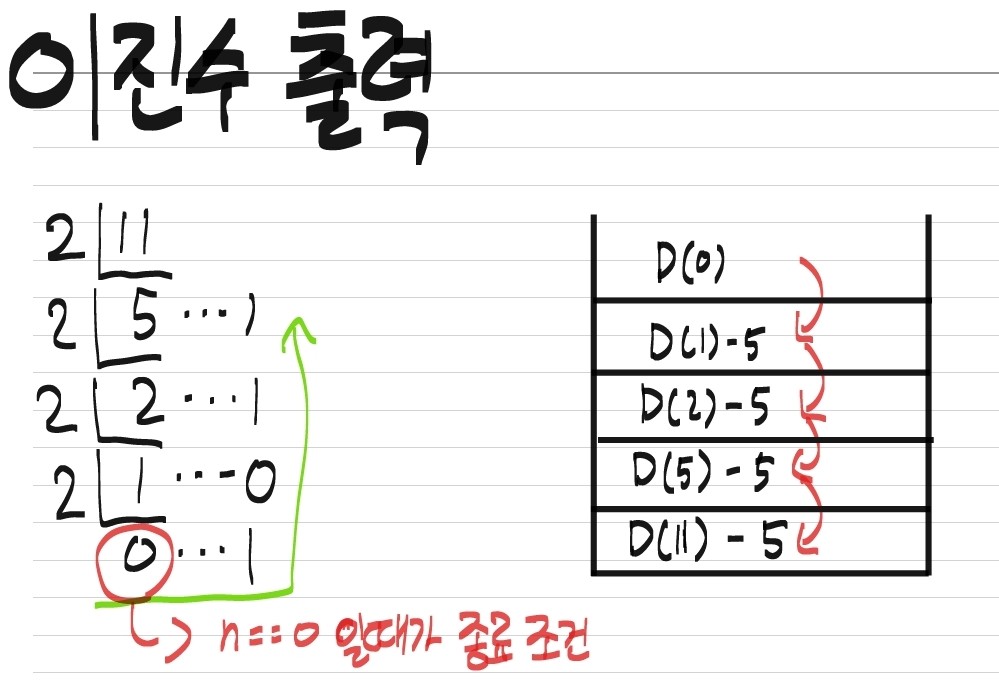 이진수 출력
2 11
2 5 ... 1
2 2 ... 1
2 1 ... 0
0 ... 1
n==0 일때가 종료 조건
D(0)
D(1)-5
D(2)-5
D(5)-5
D(11)-5